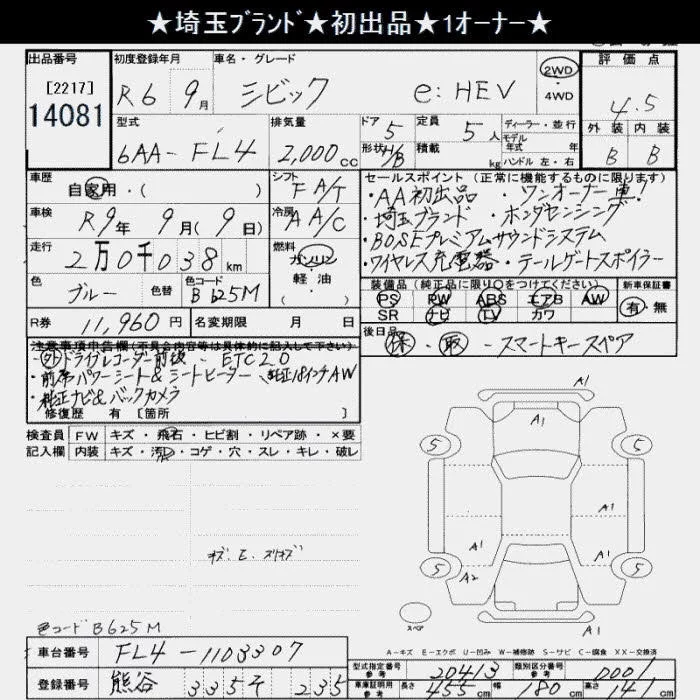 ★埼玉ﾌﾞﾗﾝﾄﾞ★初出品★1オーナー★
出品番号 初度登録年月 車名・グレード 評価点
[2217] 2WD
14081 R6 9月 シビック e:HEV ・4WD 4.5
型式 排気量 ドア 5 定員 5人 ディーラー・並行 外装 内装
6AA-FL4 2,000cc 形状 H/B 積載 kg モデル年式 年式 ハンドル 左・右 B B
車歴 自家用・( ) シフト F A/T セールスポイント(正常に機能するものに限ります)
・AA初出品 ・ワンオーナー車!
車検 R9年 9月(9日) 冷房 A A/C ・埼玉ブランド ・ホンダセンシング
走行 2万0千038km 燃料 ガソリン ・BOSEプレミアムサウンドシステム
軽油 ・ワイヤレス充電器 ・テールゲートスポイラー
色 ブルー 色替 色コード B625M ( ) 装備品(純正品に限り○をつけてください) 新車保証書
PS PW ABS エアB AW 有・無
SR ナビ TV カワ
R券 11,960円 名変期限 月 日 後日品
保・取・スマートキースペア
注意事項申告欄(不具合内容等は具体的に記入して下さい)
・外ドライブレコーダー前後 ・ETC2.0
・前席パワーシート&シートヒーター ・純正18インチAW
・純正ナビ&バックカメラ
修復歴 有 [箇所 ]
検査員 FW キズ・飛石・ヒビ割・リペア跡・×要
記入欄 内装 キズ・汚れ・コゲ・穴・スレ・キレ・破レ
A1
A1
5 5
A1
A1
A1
5 A2 5
A1
スペア
キズ、E、スリキズ
色コード B625M
A-キズ E-エクボ U-凹み W-補修跡 S-サビ C-腐食 XX-交換済
車台番号 FL4-1103307
型式指定番号 参考 20413 類別区分番号 参考 0001
熊谷 335 235
車庫証明用 参考 長さ 455cm 幅 180cm 高さ 141cm